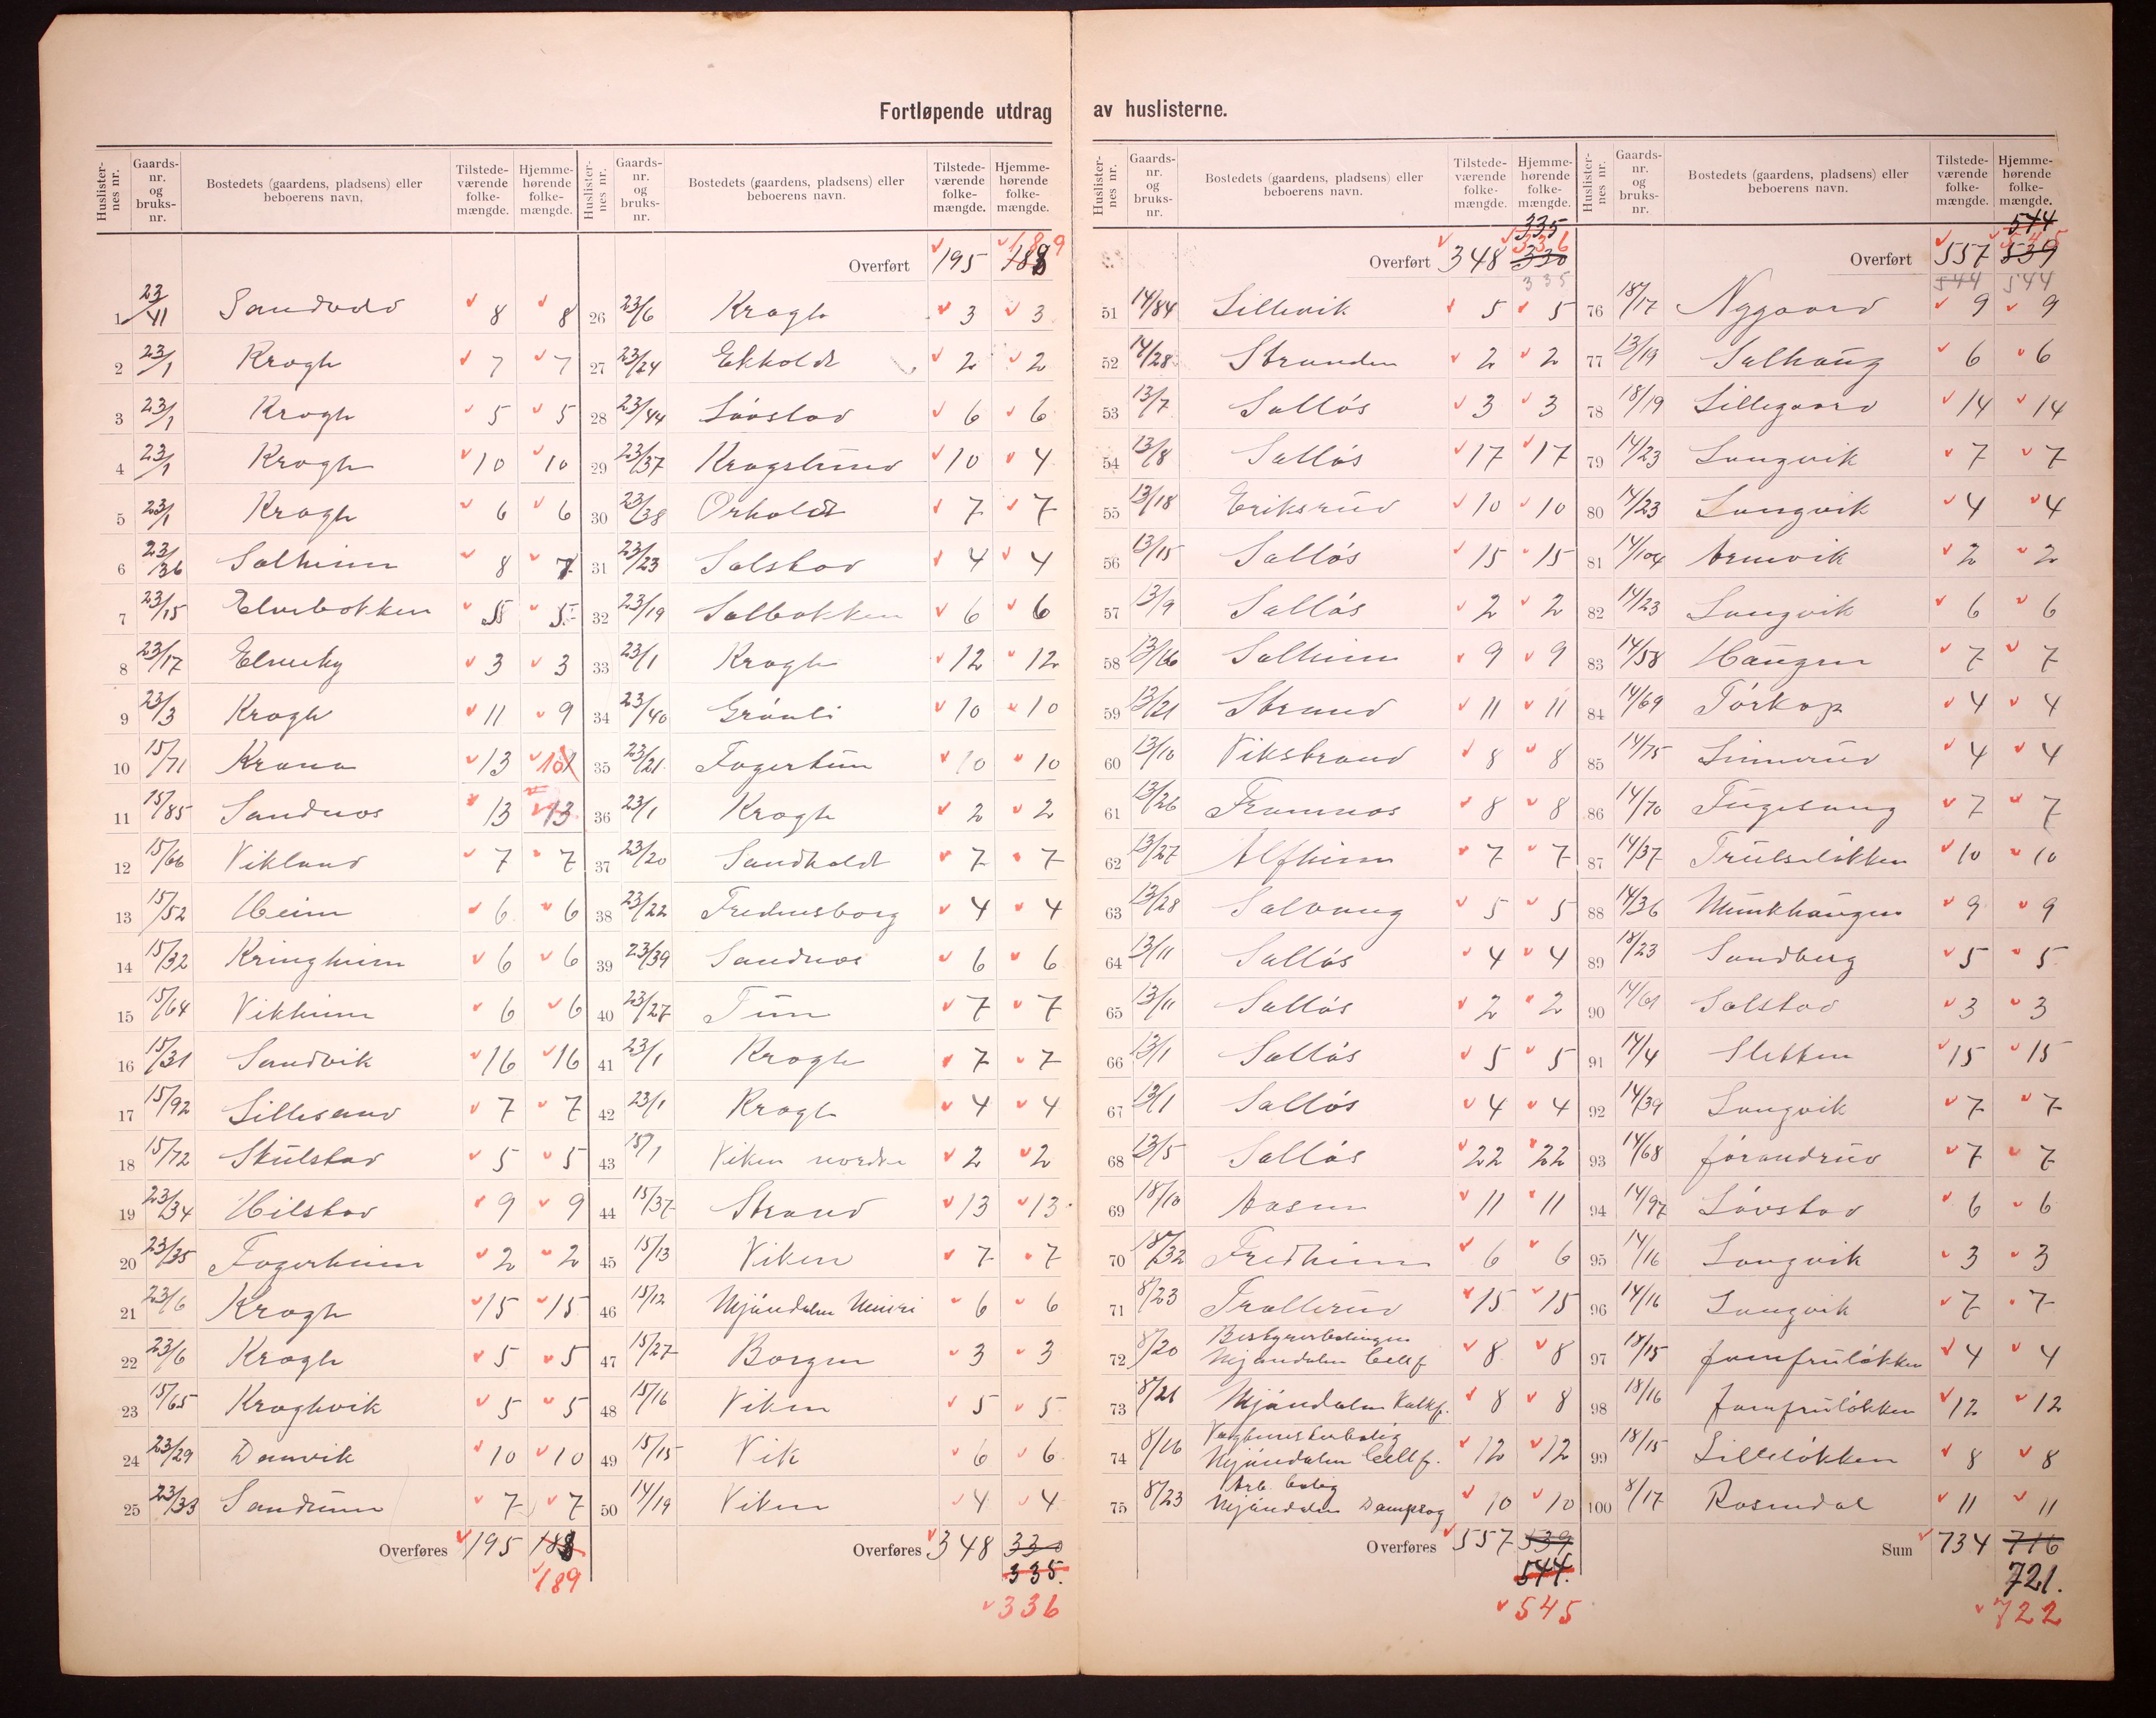 Fortløpende utdrag av huslisterne.
Huslister-nes nr. Gaards-nr. og bruks-nr. Bostedets (gaardens, pladsens) eller beboerens navn. Tilstede-værende folke-mængde. Hjemme-hørende folke-mængde.
1 23/41 Sandvold 8 8
2 23/1 Krogh 7 7
3 23/1 Krogh 5 5
4 23/1 Krogh 10 10
5 23/1 Krogh 6 6
6 23/36 Solheim 8 7
7 23/15 Elvebakken 5 5
8 23/17 Elveby 3 3
9 23/3 Krogh 11 9
10 15/71 Krana 13
11 15/85 Sandnes 13 13
12 15/66 Vikland 7 7
13 15/52 Heim 6 6
14 15/32 Kringheim 6 6
15 15/64 Vikheim 6 6
16 15/31 Sandvik 16 16
17 15/92 Lillesand 7 7
18 15/72 Skulstad 5 5
19 23/34 Hilstad 9 9
20 23/35 Fagerheim 2 2
21 23/6 Krogh 15 15
22 23/6 Krogh 5 5
23 15/65 Kroghvik 5 5
24 23/29 Damvik 10 10
25 23/33 Sandrum 7 7
Overføres 195 188
189
Huslister-nes nr. Gaards-nr. og bruks-nr. Bostedets (gaardens, pladsens) eller beboerens navn. Tilstede-værende folke-mængde. Hjemme-hørende folke-mængde.
189
Overført 195 188
26 23/6 Krogh 3 3
27 23/24 Ekholdt 2 2
28 23/44 Lövstad 6 6
29 23/37 Krogslund 10 4
30 23/38 Orholdt 7 7
31 23/23 Solstad 4 4
32 23/19 Solbakken 6 6
33 23/1 Krogh 12 12
34 23/40 Grönli 10 10
35 23/21 Fagertun 10 10
36 23/1 Krogh 2 2
37 23/20 Sandholdt 7 7
38 23/22 Fredensborg 4 4
39 23/39 Sandnes 6 6
40 23/27 Tun 7 7
41 23/1 Krogh 7 7
42 23/1 Krogh 4 4
43 15/1 Viken nordre 2 2
44 15/37 Strand 13 13
45 15/13 Viken 7 7
46 15/12 Mjöndalen Meieri 6 6
47 15/27 Borgen 3 3
48 15/16 Viken 5 5
49 15/15 Vik 6 6
50 14/19 Viken 4 4
Overføres 348 330
335.
336
Huslister-nes nr. Gaards-nr. og bruks-nr. Bostedets (gaardens, pladsens) eller beboerens navn. Tilstede-værende folke-mængde. Hjemme-hørende folke-mængde.
335
336
Overført 348 330
335
51 14/84 Lillevik 5 5
52 14/28 Stranden 2 2
53 13/7 Sollös 3 3
54 13/8 Sollös 17 17
55 13/18 Eriksrud 10 10
56 13/15 Sollös 15 15
57 13/9 Sollös 2 2
58 13/66 Solheim 9 9
59 13/21 Strand 11 11
60 13/10 Vikstrand 8 8
61 13/26 Framnes 8 8
62 13/27 Alfheim 7 7
63 13/28 Solvang 5 5
64 13/11 Sollös 4 4
65 13/11 Sollös 2 2
66 13/1 Sollös 5 5
67 13/1 Sollös 4 4
68 13/5 Sollös 22 22
69 18/10 Aasen 11 11
70 18/32 Fredheim 6 6
71 8/23 Trollerud 15 15
72 8/20 Bestyrerboligen
Mjöndalen Cellf. 8 8
73 8/21 Mjöndalen Kalkf. 8 8
74 8/16 Vagtmesterbolig
Mjöndalen Cellf. 12 12
75 8/23 Arb. bolig
Mjöndalen Dampsag 10 10
Overføres 557 539
544.
545
Huslister-nes nr. Gaards-nr. og bruks-nr. Bostedets (gaardens, pladsens) eller beboerens navn. Tilstede-værende folke-mængde. Hjemme-hørende folke-mængde.
544
545
Overført 557 539
544 544
76 18/17 Nygaard 9 9
77 13/19 Solhaug 6 6
78 18/19 Lillegaard 14 14
79 14/23 Langvik 7 7
80 14/23 Langvik 4 4
81 14/104 Arnevik 2 2
82 14/23 Langvik 6 6
83 14/58 Haugen 7 7
84 14/69 Törkop 4 4
85 14/75 Linnerud 4 4
86 14/70 Fuglesang 7 7
87 14/37 Trulseløkken 10 10
88 14/36 Munkhaugen 9 9
89 18/23 Sandberg 5 5
90 14/61 Solstad 3 3
91 14/4 Sletten 15 15
92 14/39 Langvik 7 7
93 14/68 Jörandrud 7 7
94 14/97 Lövstad 6 6
95 14/16 Langvik 3 3
96 14/16 Langvik 7 7
97 18/15 Jomfruløkken 4 4
98 18/16 Jomfruløkken 12 12
99 18/15 Lilleløkken 8 8
100 8/17 Rosendal 11 11
Sum 734 716
721.
722